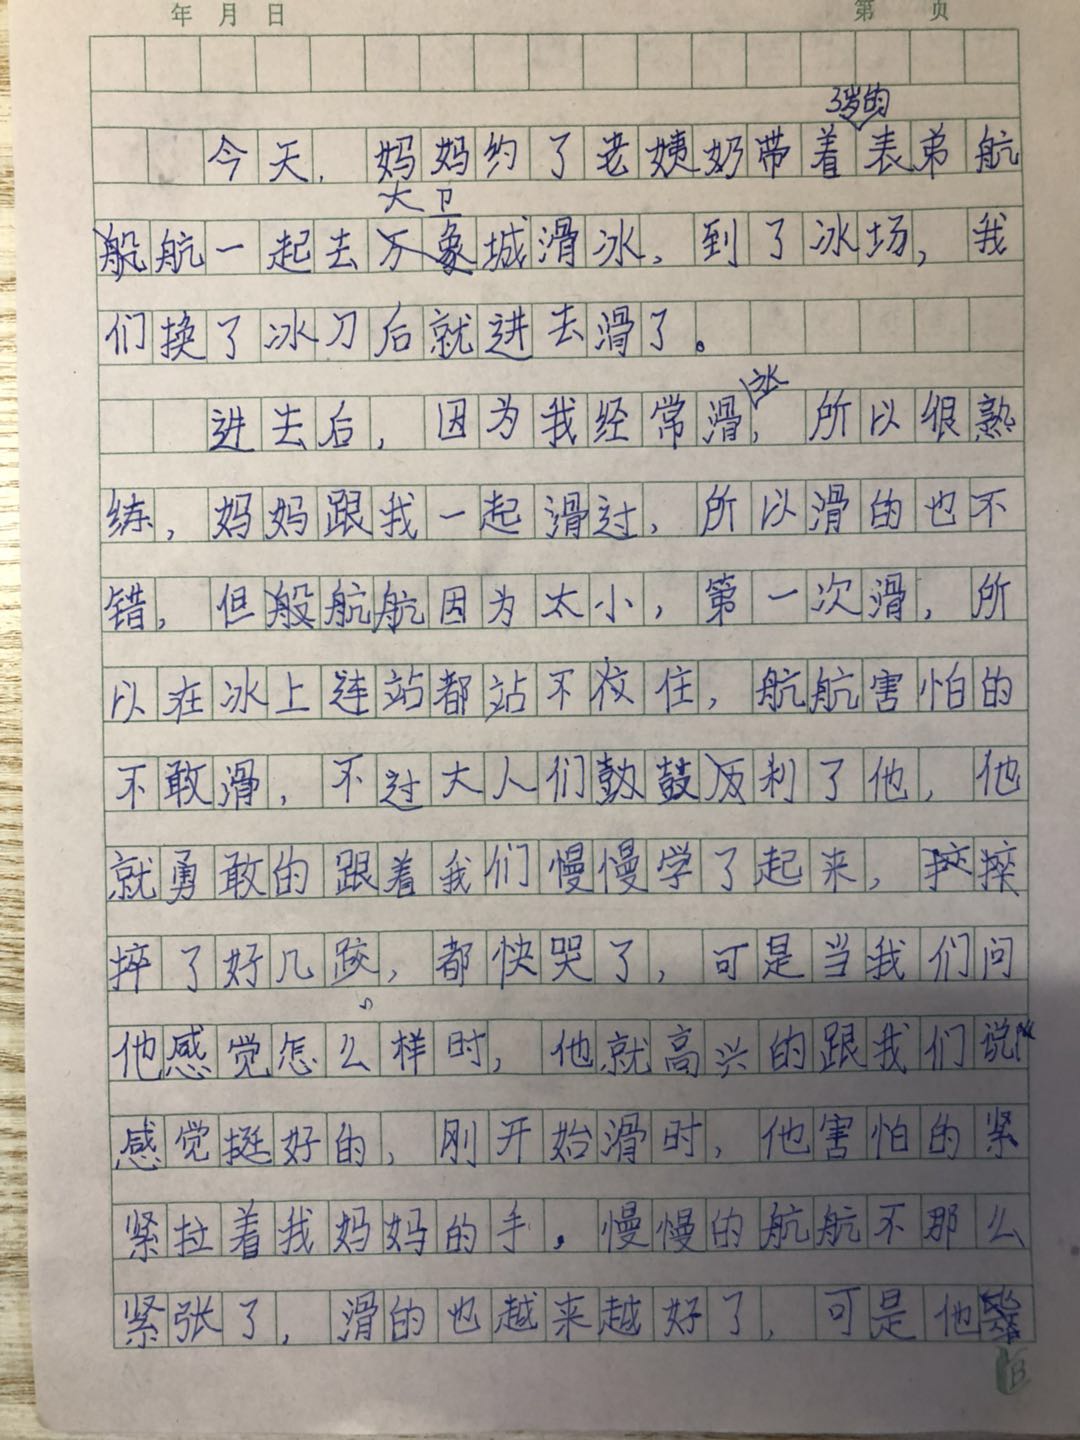 年 月 日 第 页
3岁的
今天，妈妈约了老姨奶带着表弟航
大卫
航一起去城滑冰，到了冰场，我
们换了冰刀后就进去滑了。
冰
进去后，因为我经常滑，所以很熟
练，妈妈跟我一起滑过，所以滑的也不
错，但航航因为太小，第一次滑，所
以在冰上连站都站不住，航航害怕的
不敢滑，不过大人们鼓利了他，他
就勇敢的跟着我们慢慢学了起来，摔
摔了好几跤，都快哭了，可是当我们问
他感觉怎么样时，他就高兴的跟我们说
感觉挺好的，刚开始滑时，他害怕的紧
紧拉着我妈妈的手，慢慢的航航不那么
紧张了，滑的也越来越好了，可是他